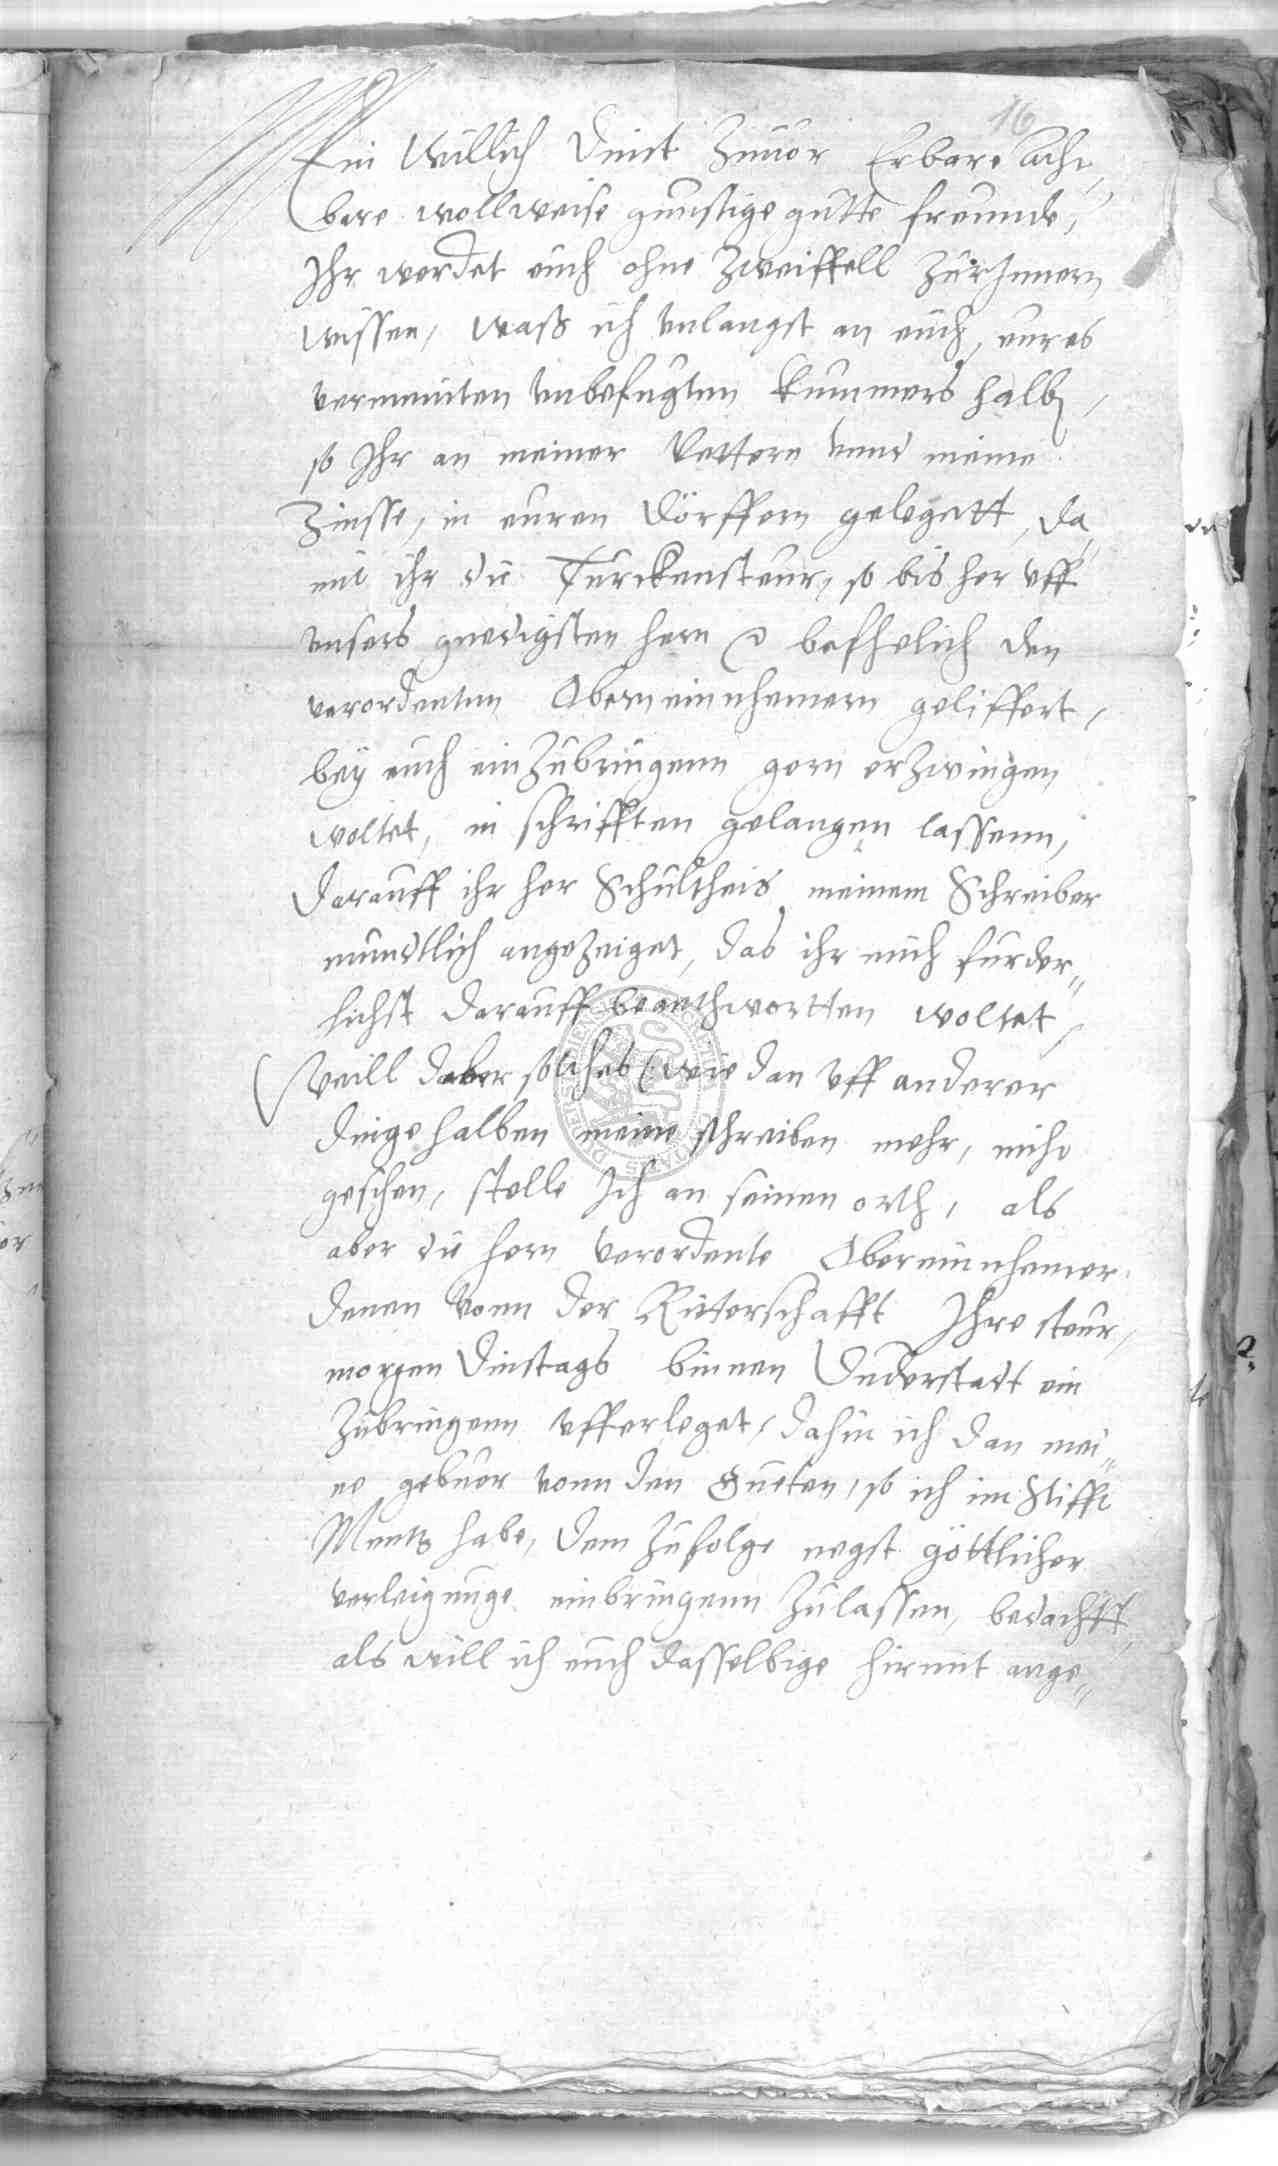 16
Ein Willich dinst Zuuor Erbare acht„
bare wollweise gunstige gutte freunde,
Ihr werdet euch ohne Zweiffell Zur Innern
wissen, waß ich vnlangst an euch, eures
vermeinten vnbefugten kummers halb,
so Ihr an meiner Vettern vnnd meine
Zinsse, in euren Dörffern gelegett, da„
mit ihr die Turckensteur, so bis her vff
vnsers gnedigsten hern befhelich den
verordenten Oberneinnhemern geliffert,
bey euch ein Zubringenn gern erZwingen
woltet, in schrifften gelangen lassenn,
darauff ihr her Schultheis meinem Schreiber
mundtlich angeZeiget, das ihr mich furder„
lichst darauff beanthwortten woltet,
Weill daber solches (wie dan vff anderer
dinge halben meine schreiben mehr, nicht
geschen, stelle Ich an seinen orth, als
aber die hern verordente Obereinnhemer
denen vonn der Ritterschafft Ihre steur,
morgen Dinstags binnen Duderstadt ein
Zubringenn vfferleget, dahin ich dan mei„
ne gebuer vonn den Gueten, so ich im Stifft
Mentz habe, dem Zufolge negst göttlicher
verleigunge einbringenn Zulassen, bedachtt,
als will ich euch dasselbige hirmit ange„